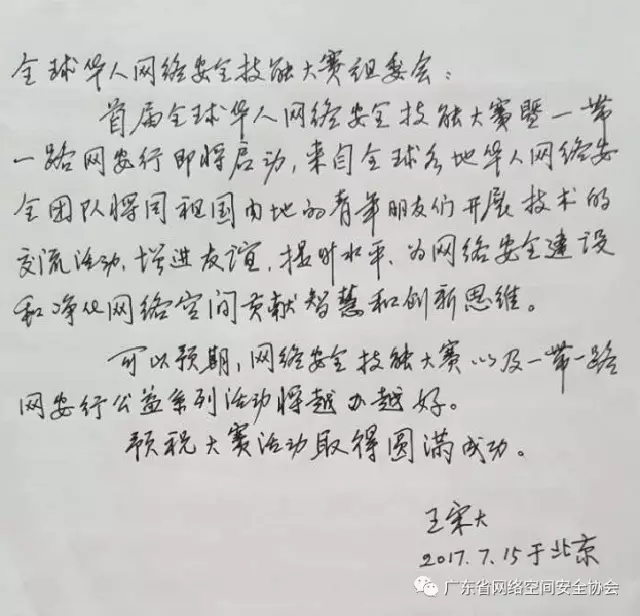 全球华人网络安全技能大赛组委会：
首届全球华人网络安全技能大赛暨一带
一路网安行即将启动，来自全球各地华人网络安
全团队将同祖国内地的青年朋友们开展技术的
交流活动、增进友谊，提升水平、为网络安全建设
和净化网络空间贡献智慧和创新思维。
可以预期，网络安全技能大赛以及一带一路
网安行公益系列活动将越办越好。
预祝大赛活动取得圆满成功。
王宋大
2017.7.15于北京
广东省网络空间安全协会